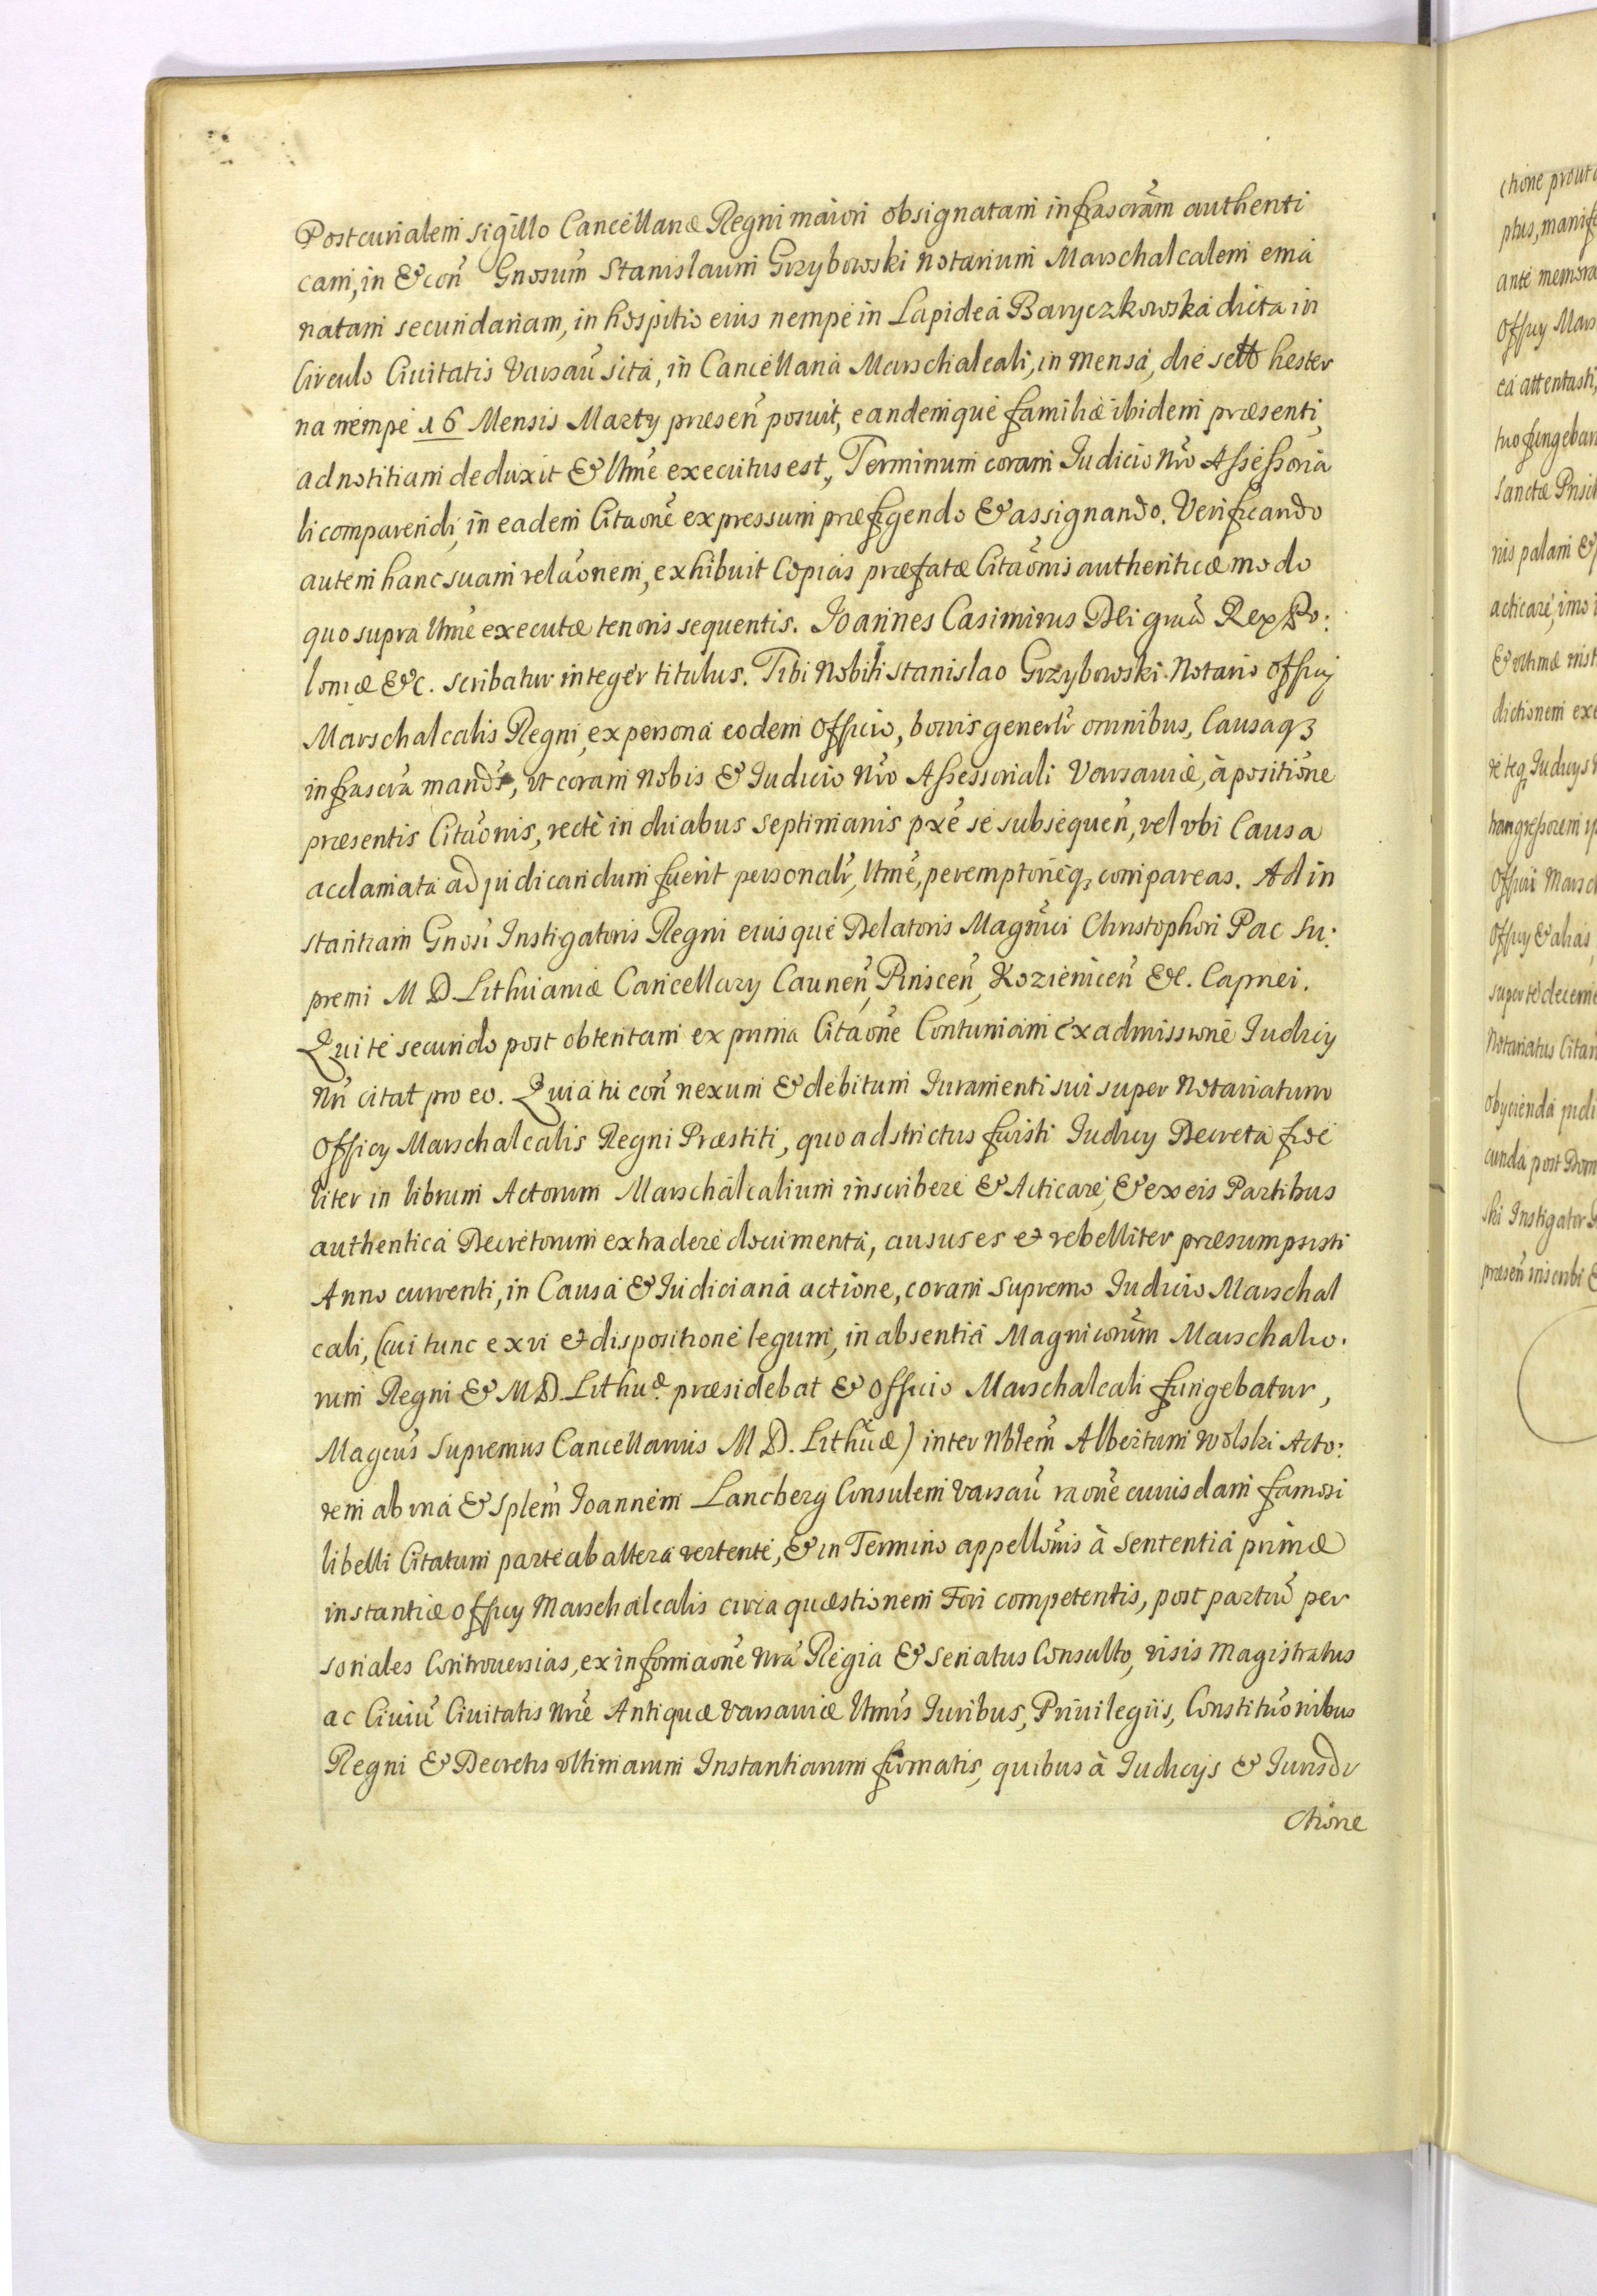 Postcurialem sigillo Cancellariæ Regni maiori obsignatam infrascrãm authenti
cam, in & con̄ Gnosum̄ Stanislaum Grzybowski Notarium Marschalcalem ema
natam secundariam, in hospitio eius nempe in Lapidea Baryczkowska dicta in
Circulo Ciuitatis Varsau̅ sita, in Cancellaria Marschalcali, in mensa, die sctt hester
na nempe 16 Mensis Marty præsen̄ posuit, eandemque familiæ ibidem præsenti,
ad notitiam deduxit & ltme executus est, Terminum coram Iudicio nro Assessoria
li comparendi, in eadem Citaōne expressum præfigendo & assignando. Verificando
autem hanc suam relaōnem, exhibuit Copias præfatæ Citaōnis authenticæ modo
quo supra ltme executæ tenoris sequentis. Joannes Casimirus Dei gra Rex Po:
loniæ &c. scribatur integer titulus. Tibi Nobili Stanislao Grzybowski Notario Officij
Marschalcalis Regni, ex persona eodem Officio, bonis genertr omnibus, Causaqz
infrascra mands, vt coram Nobis & Iudicio Nro Assessoriali Varsauiæ, à positione
præsentis Citaōnis, rectè in duabus Septimanis pxe se subsequen̄, vel vbi Causa
acclamata ad judicandum fuerit personalr, ltme, peremptorieqz compareas. Ad in
stantiam Gnosi Instigatoris Regni eiusque Delatoris Magnici Christophori Pac Su:
premi M D. Lithuaniæ Cancellary Caunen̄, Pinscen̄, Kozienicen̄ &c. Capnei.
Qui te secundo post obtentam ex prima Citaōne Contumiam ex admissione Iudicy
Nri citat pro eo. Quia tu con̄ nexum & debitum Iuramenti sui super Notariatum
Officy Marschalcalis Regni Præstiti, quo adstrictus fuisti Iudicy Decreta fide
liter in librum Actorum Marschalcalium inscribere & Acticare, & ex eis Partibus
authentica Decretorum extradere documenta, ausus es et rebelliter præsumpsisti
Anno currenti, in Causa & Iudiciaria actione, coram Supremo Iudicio Marschal
cali, (cui tunc ex vi et dispositione legum, in absentia Magnicorum̄ Marschalco:
rum Regni & M D. Lithuæ præsidebat & Officio Marschalcali fungebatur,
Magcus Supremus Cancellarius M D. Lithuæ) inter Nblem̄ Albertum Wolski Acto:
rem ab vna & Splem̄ Joannem Lancberg Consulem Varsau̅ raōne cuiusdam famosi
libelli Citatum parte ab altera vertente, & in Termino appellōnis à Sententia primæ
instantiæ officy Marschalcalis circa quæstionem Fori competentis, post partiū per
sonales Controuersias, ex informaōne Nra Regia & Senatus Consulto, visis Magistratus
ac Ciuiū Ciuitatis Nræ Antiquæ Varsauiæ ltmis Iuribus, Priuilegiis, Constituōnibus
Regni & Decretis vltimarum Instantiarum firmatis, quibus à Iudicijs & Iurisdi
ctione